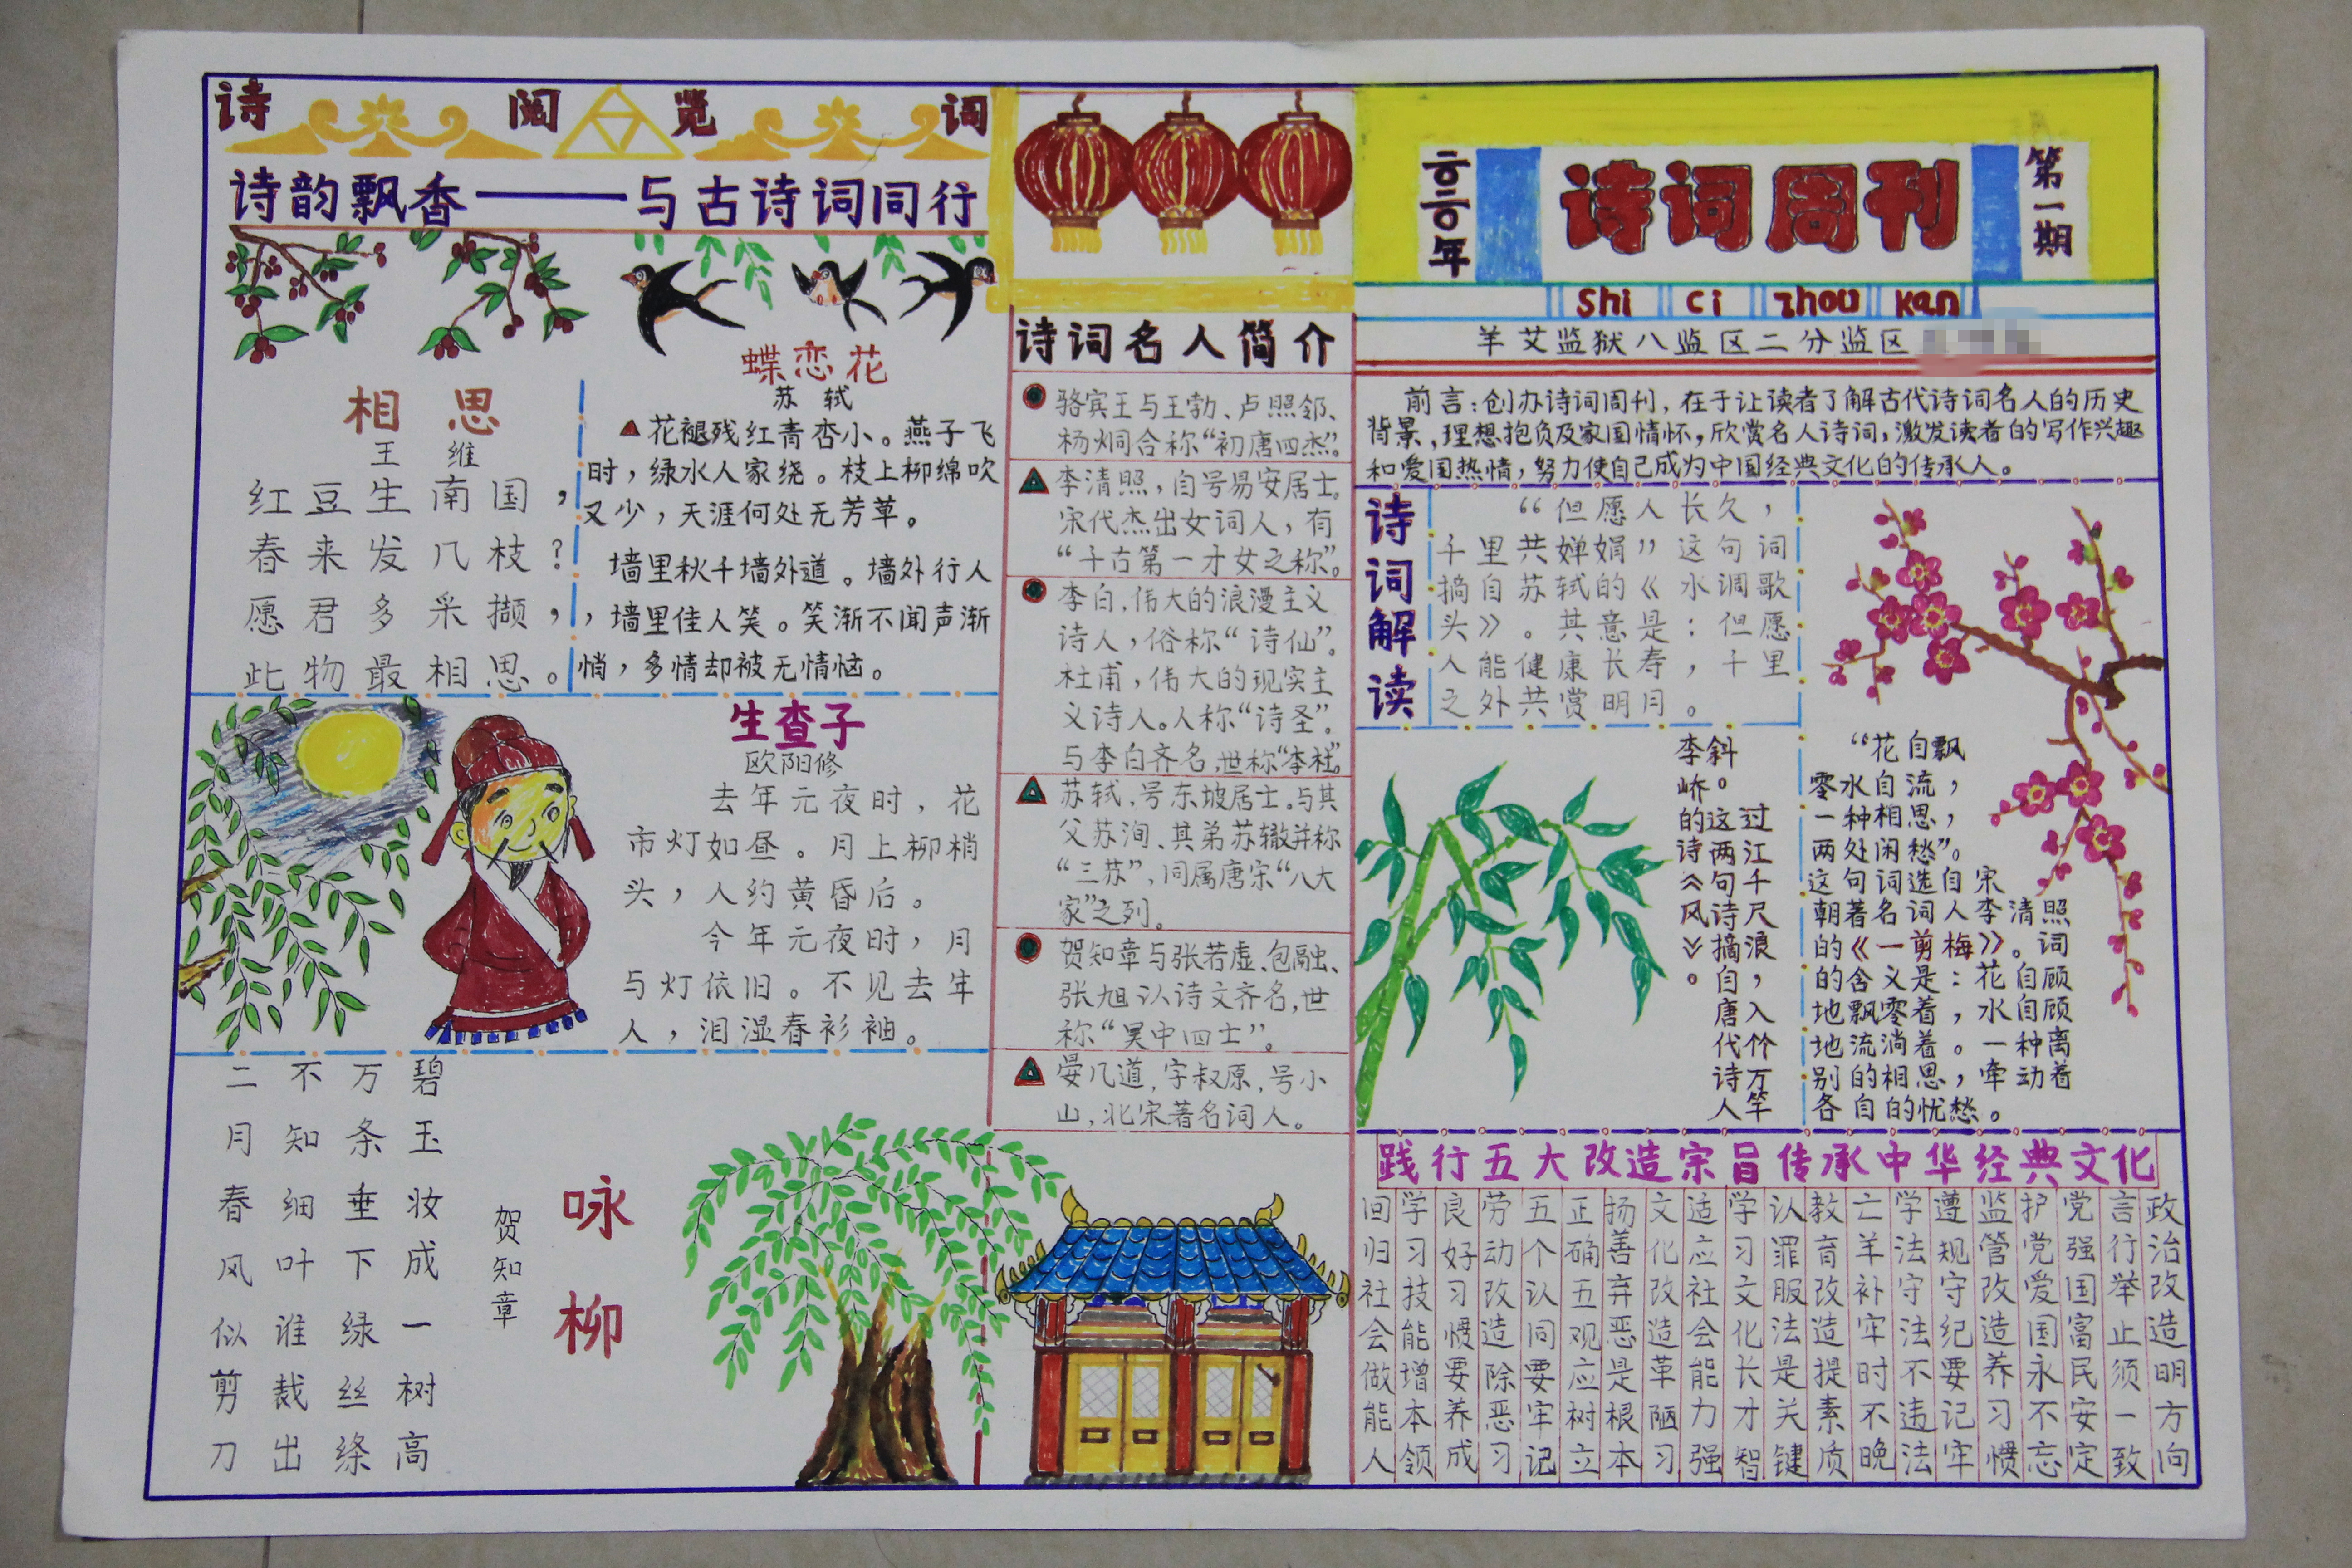 诗 阅 览 词
诗韵飘香——与古诗词同行
相思
王维
红豆生南国，
春来发几枝？
愿君多采撷，
此物最相思。
蝶恋花
苏轼
花褪残红青杏小。燕子飞
时，绿水人家绕。枝上柳绵吹
又少，天涯何处无芳草。
墙里秋千墙外道。墙外行人
，墙里佳人笑。笑渐不闻声渐
悄，多情却被无情恼。
生查子
欧阳修
去年元夜时，花
市灯如昼。月上柳梢
头，人约黄昏后。
今年元夜时，月
与灯依旧。不见去年
人，泪湿春衫袖。
咏柳
贺知章
碧玉妆成一树高
万条垂下绿丝绦
不知细叶谁裁出
二月春风似剪刀
诗词名人简介
骆宾王与王勃、卢照邻、
杨炯合称“初唐四杰”。
李清照，自号易安居士。
宋代杰出女词人，有
“千古第一才女之称”。
李白，伟大的浪漫主义
诗人，俗称“诗仙”。
杜甫，伟大的现实主
义诗人。人称“诗圣”。
与李白齐名，世称“李杜”。
苏轼，号东坡居士。与其
父苏洵、其弟苏辙并称
“三苏”，同属唐宋“八大
家”之列。
贺知章与张若虚、包融、
张旭认诗文齐名，世
称“吴中四士”。
晏几道，字叔原，号小
山，北宋著名词人。
二〇二〇年
诗词周刊
第一期
shi ci zhou kan
羊艾监狱八监区二分监区
前言：创办诗词周刊，在于让读者了解古代诗词名人的历史
背景、理想抱负及家国情怀，欣赏名人诗词，激发读者的写作兴趣
和爱国热情，努力使自己成为中国经典文化的传承人。
诗词解读
“但愿人长久，
千里共婵娟”这句词
摘自苏轼的《水调歌
头》。其意是：但愿
人能健康长寿，千里
之外共赏明月。
过江千尺浪，入竹万竿
斜。这两句诗摘自唐代诗人
李峤的诗《风》。
“花自飘
零水自流，
一种相思，
两处闲愁”。
这句词选自宋
朝著名词人李清照
的《一剪梅》。词
的含义是：花自顾
地飘零着，水自顾
地流淌着。一种离
别的相思，牵动着
各自的忧愁。
践行五大改造宗旨传承中华经典文化
政治改造明方向
言行举止须一致
党强国富民安定
护党爱国永不忘
监管改造养习惯
遵规守纪要记牢
学法守法不违法
亡羊补牢时不晚
教育改造提素质
认罪服法是关键
学习文化长才智
适应社会能力强
文化改造革陋习
扬善弃恶是根本
正确五观应树立
五个认同要牢记
劳动改造除恶习
良好习惯要养成
学习技能增本领
回归社会做能人